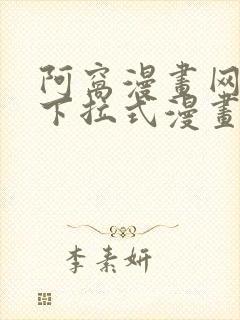 阿窩漫畫网
下拉式漫畫
李素妍